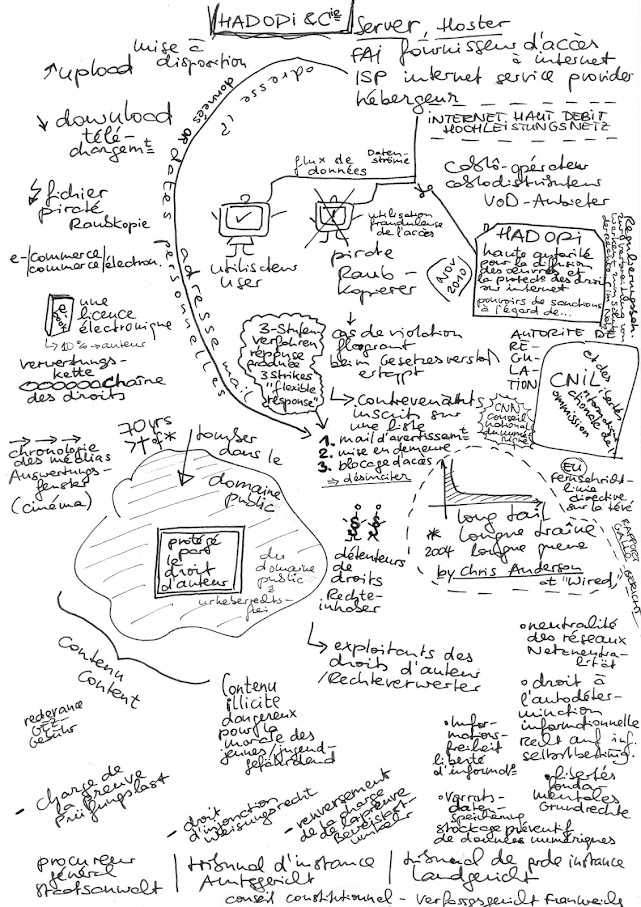 HADOPI & Cie
Server, Hoster
FAI fournisseur d'accès
à internet
ISP internet service provider
hébergeur
INTERNET HAUT DEBIT
HOCHLEISTUNGSNETZ
mise à
disposition
upload
download
télé-
chargemt
fichier
piraté
Raubkopie
e-/commerce/
commerce/électron.
une
licence
électronique
→ 10% → auteur
verwertungs-
kette
chaîne
des droits
adresse IP
données OR dates personnelles
adresse mail
flux de
données
Daten-
ströme
utilisateur
User
utilisation
frauduleuse
de l'accès
pirate
Raub-
kopierer
câblo-opérateur
câblodistributeur
VoD-Anbieter
HADOPI
haute autorité
pour la diffusion
des œuvres et
la protect° des droits
sur internet
pouvoirs de sanctions
à l'égard de...
NOV
2010
AUTORITE DE
RE-
GU-
LATION
CNIL
commission
nationale de l'
informatique
et des libertés
CNN
conseil
national
du numé-
rique
3-Stufen
verfahren
réponse
graduée
3 Strikes
"flexible
response"
cas de violation
flagrant
beim Gesetzesverstoß
ertappt
→ contrevenants
inscrits sur
une liste
1. mail d'avertissemt
2. mise en demeure
3. blocage d'accès
⇒ désinciter
chronologie
des médias
Auswertungs-
fenster
(cinéma)
70 yrs
tomber
dans le
domaine
public
protégé
par
le
droit
d'auteur
du
domaine
public
urheberrechts-
frei
détenteurs
de
droits
Rechte-
inhaber
→ exploitants des
droits d'auteur
/Rechteverwerter
long tail
* longue traîne
2004 longue queue
by Chris Anderson
et "Wired"
EU
Fernsehricht-
linie
directive
sur la télé
RAPPORT
GALLO-BERICHT
contenu
Content
redevance
GEZ-
Gebühr
Contenu
illicite
dangereux
pour la
morale des
jeunes/jugend-
gefährdend
• neutralité
des réseaux
Netzneutra-
lität
• droit à
l'autodéter-
mination
informationnelle
recht auf inf.
selbstbestimg.
• Infor-
mations-
freiheit
liberté
d'informat°
• libertés
fonda-
mentales
Grundrechte
• Vorrats-
daten-
speicherung
stockage préventif
de données numériques
- charge de
la preuve
Prüfungslast
- droit
d'injonction
Weisungsrecht
- renversement
de la charge
de la preuve
Beweislast-
umkehr
procureur
général
Staatsanwalt
tribunal d'instance
Amtsgericht
tribunal de grde instance
Landgericht
conseil constitutionnel - Verfassgsgericht Frankreichs